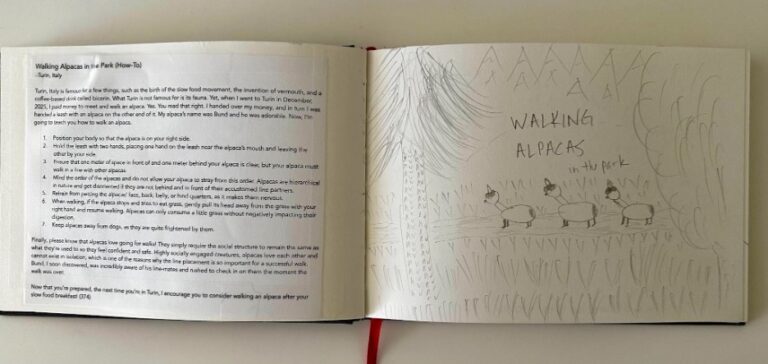 Walking Alpacas in the Park (How-To)
-Turin, Italy
Turin, Italy is famous for a few things, such as the birth of the slow food movement, the invention of vermouth, and a
coffee-based drink called bicerin. What Turin is not famous for is its fauna. Yet, when I went to Turin in December,
2025, I paid money to meet and walk an alpaca. Yes. You read that right. I handed over my money, and in turn I was
handed a leash with an alpaca on the other end of it. My alpaca's name was Bund and he was adorable. Now, I'm
going to teach you how to walk an alpaca.
1. Position your body so that the alpaca is on your right side.
2. Hold the leash with two hands, placing one hand on the leash near the alpaca's mouth and leaving the
other by your side.
3. Ensure that one meter of space in front of and one meter behind your alpaca is clear, but your alpaca must
walk in a line with other alpacas.
4. Mind the order of the alpacas and do not allow your alpaca to stray from this order. Alpacas are hierarchical
in nature and get disoriented if they are not behind and in front of their accustomed line partners.
5. Refrain from petting the alpacas' face, back, belly, or hind quarters, as it makes them nervous.
6. When walking, if the alpaca stops and tries to eat grass, gently pull its head away from the grass with your
right hand and resume walking. Alpacas can only consume a little grass without negatively impacting their
digestion.
7. Keep alpacas away from dogs, as they are quite frightened by them.
Finally, please know that alpacas love going for walks! They simply require the social structure to remain the same as
what they're used to so they feel confident and safe. Highly socially engaged creatures, alpacas love each other and
cannot exist in isolation, which is one of the reasons why the line placement is so important for a successful walk.
Bund, I soon discovered, was incredibly aware of his line-mates and rushed to check in on them the moment the
walk was over.
Now that you're prepared, the next time you're in Turin, I encourage you to consider walking an alpaca after your
slow food breakfast! (374)
WALKING
ALPACAS
in the park